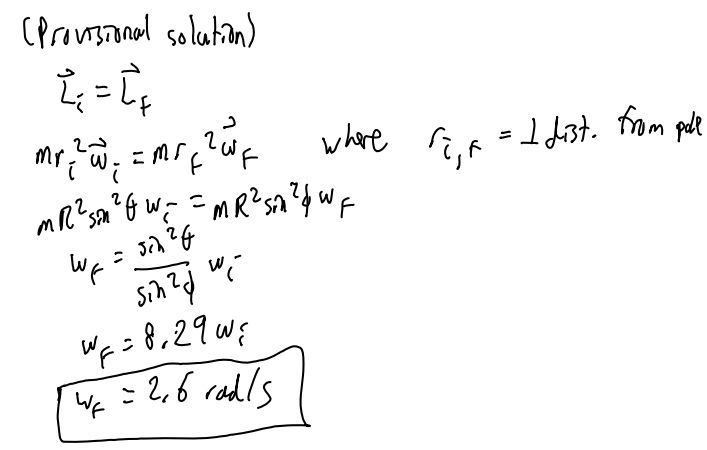 (Provisional solution)
L⃗ᵢ = L⃗_F
mrᵢ²ω⃗ᵢ = mr_F²ω⃗_F where r_i,F = ⊥ dist. from pole
mR²sin²θ ωᵢ = mR²sin²ϕ ω_F
ω_F = sin²θ/sin²ϕ ωᵢ
ω_F = 8.29 ωᵢ
ω_F = 2.6 rad/s